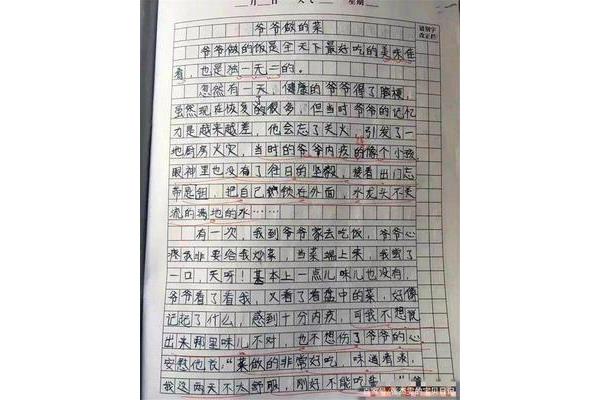 月 日 天气 星期
爷爷做的菜
请别字
改正栏
爷爷做的饭是全天下最好吃的美味佳
肴，也是独一无二的。
忽然有一天，健康的爷爷得了脑梗，
虽然现在恢复了很多，但当时爷爷的记忆
力是越来越差，他会忘了关火，引发了一
地厨房火灾，当时的爷爷内疚的像个小孩，
眼神里也没有了往日的坚毅，接着出门忘
带是钥，把自己锁在外面，水龙头不关
流的满地的水……
有一次，我到爷爷家去吃饭，爷爷心
疼我非要给我炒菜，当菜端上来，我尝了
一口，天呀！基本上一点儿味儿也没有，
爷爷看了看我，又看了看盘中的菜，好像
记起了什么，感到十分内疚，可我不想说
出来哪里味儿不对，也不想伤了爷爷的心
安慰他说：“菜做的非常好吃，味道看淡，
我这两天不太舒服，刚好不能吃盐。”